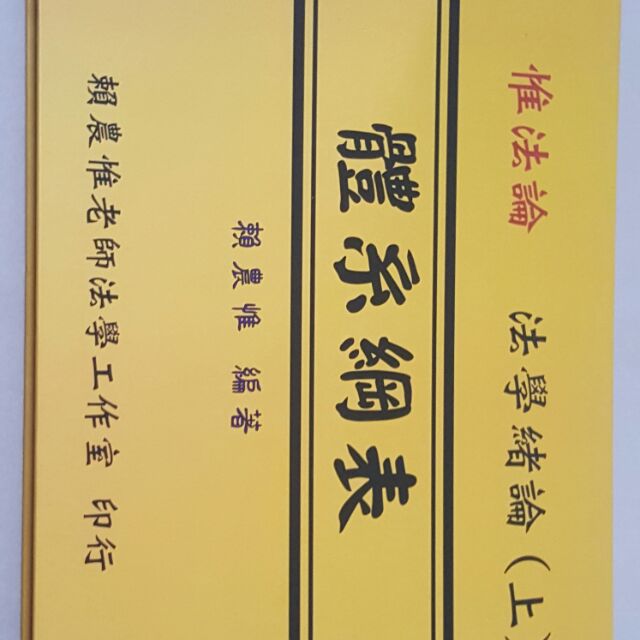 惟法論 法學緒論（上）
體系綱表
賴農惟 編著
賴農惟老師法學工作室 印行